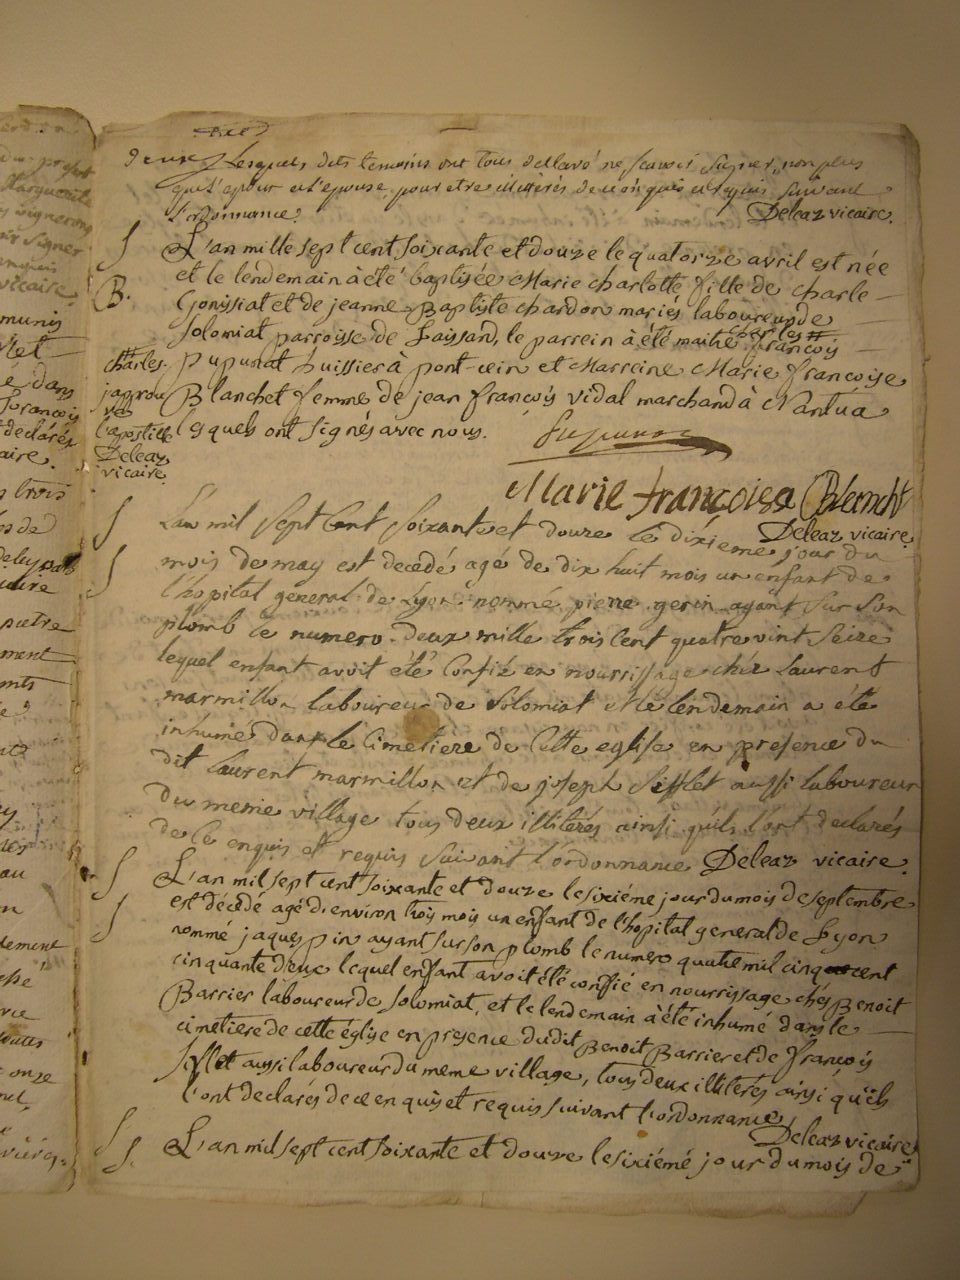 deux, Lesquels dits temoins ont tous declaré ne scavoir signer, non plus
que l'epoux et l'epouse pour etre illitérés de ce enquis et requis suivant
l'ordonnance. Deleaz vicaire.
L'an mille sept cent soixante et douze le quatorze avril est née
et le lendemain à été baptisée Marie charlotte fille de charle
B.
Gonissiat et de jeanne-Baptiste chardon mariés laboureur de
Solomiat parroisse de Laissard, le parrein à été maitre charles # françois
Pupunat huissier à pont-d'ein et Marreine Marie françoise
Blanchet femme de jean françois vidal marchand à Nantua
lesquels ont signés avec nous. Pupunat
# charles.
japprouve
l'apostille
Deleaz
vicaire.
Marie françoise Blanchet
Deleaz vicaire.
L'an mil sept Cent soixante et douze le dixieme jour du
mois de may est decedé agé de dix huit mois un enfant de
l'hopital general de Lyon nommé pierre gerin ayant sur son
plomb le numero deux mille trois cent quatre vint seize
lequel enfant avoit été Confié en nourrissage chéz Laurent
marmillon laboureur de Solomiat et le lendemain a été
inhumé dans le Cimetiere de Cette eglise en presence du
dit laurent marmillon et de joseph Sifflet aussi laboureur
du meme village tous deux illitérés ainsi quils l'ont declarés
de Ce enquis et requis suivant l'ordonnance Deleaz vicaire.
L'an mil sept cent soixante et douze le sixiéme jour du mois de septembre
est décédé agé d'environ trois mois un enffant de l'hopital general de Lyon
nommé jaques pin ayant sur son plomb le numero quatre mil cinq cent
cinquante deux lequel enffant avoit été confié en nourrissage chés Benoit
Barrier laboureur de Solomiat, et le lendemain à été inhumé dans le
cimetiere de cette église en presence dudit Benoit Barrier et de françois
Sifflet aussi laboureur du meme village, tous deux illitérés ainsi qu'ils
l'ont declarés de ce enquis et requis suivant l'ordonnance
Deleaz vicaire
L'an mil sept cent soixante et douze le sixiémé jour du mois de